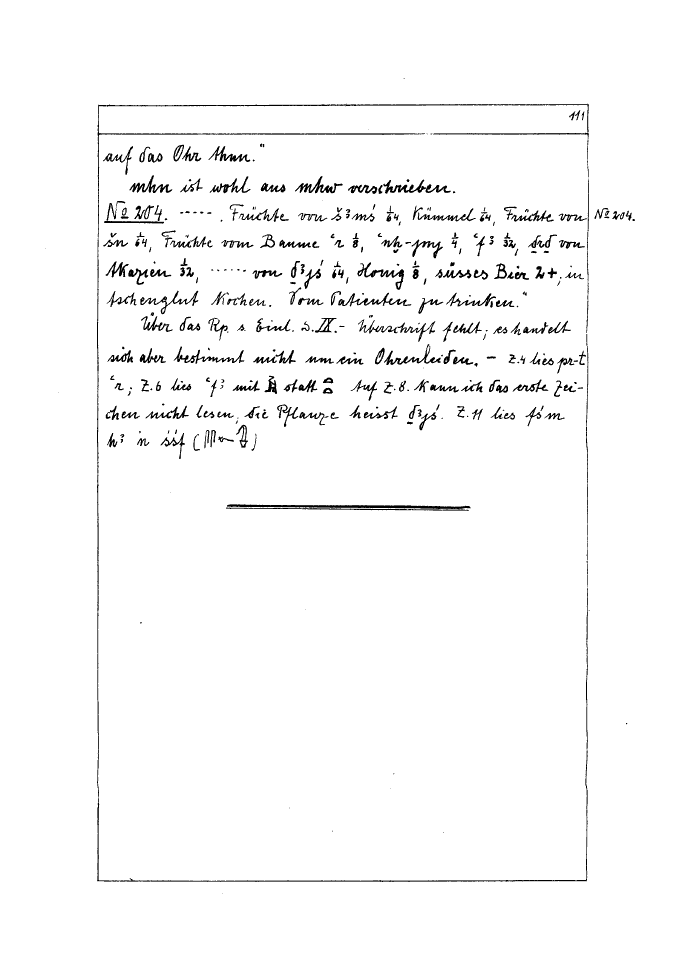 111
auf das Ohr thun."
mhn ist wohl aus mhw verschrieben.
No 204. ..... . Früchte von šꜣmś 1/64, Kümmel 1/64, Früchte von No 204.
šn 1/64, Früchte vom Baume ꜥr 1/8, ꜥnḫ-jmy 1/4, ꜥfꜣ 1/32, ḏrḏ von
Akazien 1/32, ...... von ḏꜣjś 1/64, Honig 1/8, süsses Bier 2+; in
Aschenglut kochen. Vom Patienten zu trinken."
Über das Rp. s. Einl. S. IX.- Überschrift fehlt; es handelt
sich aber bestimmt nicht um ein Ohrenleiden. - Z.4 lies pr-t
ꜥr; Z.6 lies ꜥfꜣ mit statt Auf Z.8. kann ich das erste Zei-
chen nicht lesen, die Pflanze heisst ḏꜣjś. Z.11 lies fśm
ḥꜣ in śśf ( )